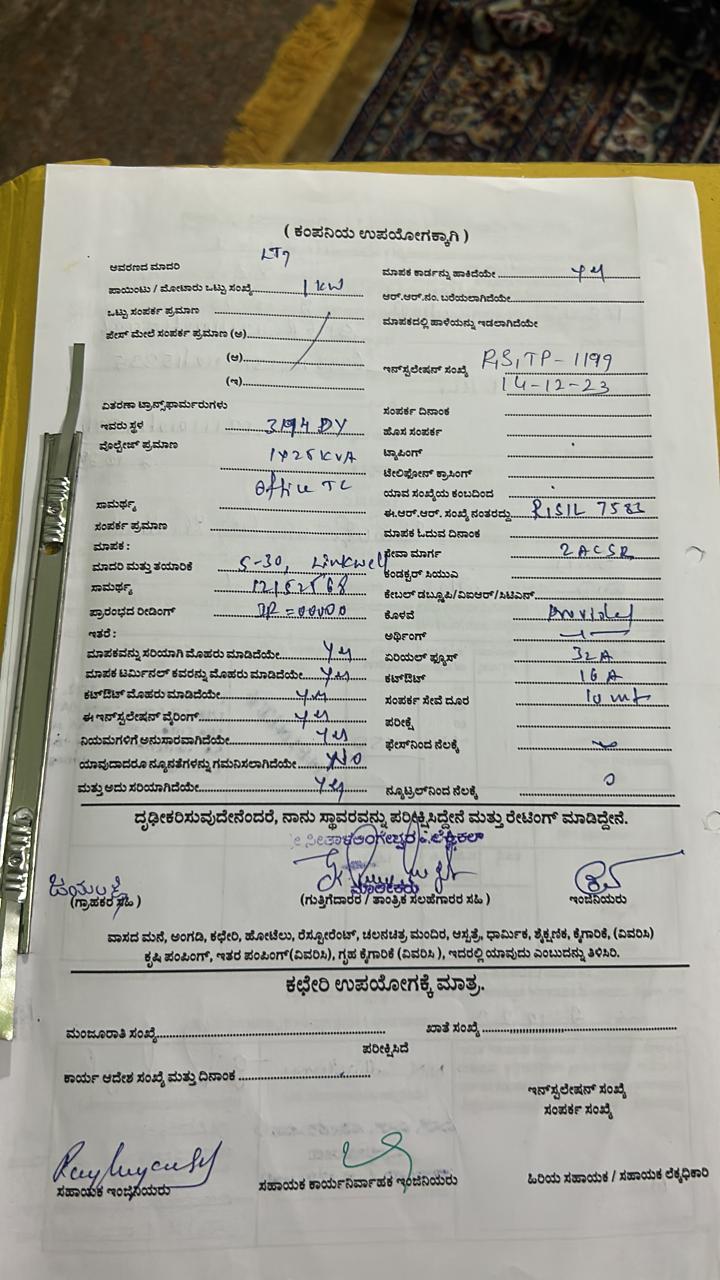 ( ಕಂಪನಿಯ ಉಪಯೋಗಕ್ಕಾಗಿ )
ಆವರಣದ ಮಾದರಿ
ಪಾಯಿಂಟು / ಮೋಟಾರು ಒಟ್ಟು ಸಂಖ್ಯೆ 1 KW
ಒಟ್ಟು ಸಂಪರ್ಕ ಪ್ರಮಾಣ
ಫೇಸ್ ಮೇಲೆ ಸಂಪರ್ಕ ಪ್ರಮಾಣ (ಅ)
(ಆ)
(ಇ)
ವಿತರಣಾ ಟ್ರಾನ್ಸ್‌ಫಾರ್ಮರುಗಳು
ಇವರು ಸ್ಥಳ
ವೊಲ್ಟೇಜ್ ಪ್ರಮಾಣ 1X25KVA
Office TC
ಸಾಮರ್ಥ್ಯ
ಸಂಪರ್ಕ ಪ್ರಮಾಣ
ಮಾಪಕ :
ಮಾದರಿ ಮತ್ತು ತಯಾರಿಕೆ 5-30, Linkwell
ಸಾಮರ್ಥ್ಯ
ಪ್ರಾರಂಭದ ರೀಡಿಂಗ್
ಇತರೆ :
ಮಾಪಕವನ್ನು ಸರಿಯಾಗಿ ಮೊಹರು ಮಾಡಿದೆಯೇ Yes
ಮಾಪಕ ಟರ್ಮಿನಲ್ ಕವರನ್ನು ಮೊಹರು ಮಾಡಿದೆಯೇ Yes
ಕಟ್‌ಔಟ್ ಮೊಹರು ಮಾಡಿದೆಯೇ Yes
ಈ ಇನ್‌ಸ್ಟಲೇಷನ್ ವೈರಿಂಗ್ Yes
ನಿಯಮಗಳಿಗೆ ಅನುಸಾರವಾಗಿದೆಯೇ Yes
ಯಾವುದಾದರೂ ನ್ಯೂನತೆಗಳನ್ನು ಗಮನಿಸಲಾಗಿದೆಯೇ NO
ಮತ್ತು ಅದು ಸರಿಯಾಗಿದೆಯೇ Yes
ಮಾಪಕ ಕಾರ್ಡನ್ನು ಹಾಕಿದೆಯೇ Yes
ಆರ್.ಆರ್.ನಂ. ಬರೆಯಲಾಗಿದೆಯೇ
ಮಾಪಕದಲ್ಲಿ ಹಾಳೆಯನ್ನು ಇಡಲಾಗಿದೆಯೇ
ಇನ್‌ಸ್ಟಲೇಷನ್ ಸಂಖ್ಯೆ RSTP-1199
14-12-23
ಸಂಪರ್ಕ ದಿನಾಂಕ
ಹೊಸ ಸಂಪರ್ಕ
ಟ್ಯಾಪಿಂಗ್
ಟೆಲಿಫೋನ್ ಕ್ರಾಸಿಂಗ್
ಯಾವ ಸಂಖ್ಯೆಯ ಕಂಬದಿಂದ
ಈ.ಆರ್.ಆರ್. ಸಂಖ್ಯೆ ನಂತರದ್ದು
ಮಾಪಕ ಓದುವ ದಿನಾಂಕ
ಸೇವಾ ಮಾರ್ಗ 2ACSR
ಕಂಡಕ್ಟರ್ ಸಿಯುಎ
ಕೇಬಲ್ ಡಬ್ಲೂಪಿ/ವಿಐಆರ್/ಸಿಟಿಎಸ್
ಕೊಳವೆ Provided
ಅರ್ಥಿಂಗ್
ಏರಿಯಲ್ ಫ್ಯೂಸ್ 32A
ಕಟ್‌ಔಟ್ 16 A
ಸಂಪರ್ಕ ಸೇವೆ ದೂರ 10 mt
ಪರೀಕ್ಷೆ
ಫೇಸ್‌ನಿಂದ ನೆಲಕ್ಕೆ
ನ್ಯೂಟ್ರಲ್‌ನಿಂದ ನೆಲಕ್ಕೆ 0
ದೃಢೀಕರಿಸುವುದೇನೆಂದರೆ, ನಾನು ಸ್ಥಾವರವನ್ನು ಪರೀಕ್ಷಿಸಿದ್ದೇನೆ ಮತ್ತು ರೇಟಿಂಗ್ ಮಾಡಿದ್ದೇನೆ.
ಮಾಲೀಕರು
(ಗ್ರಾಹಕರ ಸಹಿ ) (ಗುತ್ತಿಗೆದಾರರ / ತಾಂತ್ರಿಕ ಸಲಹೆಗಾರರ ಸಹಿ ) ಇಂಜಿನಿಯರು
ವಾಸದ ಮನೆ, ಅಂಗಡಿ, ಕಛೇರಿ, ಹೋಟೆಲು, ರೆಸ್ಟೋರೆಂಟ್, ಚಲನಚಿತ್ರ ಮಂದಿರ, ಆಸ್ಪತ್ರೆ, ಧಾರ್ಮಿಕ, ಶೈಕ್ಷಣಿಕ, ಕೈಗಾರಿಕೆ, (ವಿವರಿಸಿ)
ಕೃಷಿ ಪಂಪಿಂಗ್, ಇತರ ಪಂಪಿಂಗ್(ವಿವರಿಸಿ), ಗೃಹ ಕೈಗಾರಿಕೆ (ವಿವರಿಸಿ ), ಇದರಲ್ಲಿ ಯಾವುದು ಎಂಬುದನ್ನು ತಿಳಿಸಿರಿ.
ಕಛೇರಿ ಉಪಯೋಗಕ್ಕೆ ಮಾತ್ರ.
ಮಂಜೂರಾತಿ ಸಂಖ್ಯೆ ಖಾತೆ ಸಂಖ್ಯೆ
ಪರೀಕ್ಷಿಸಿದೆ
ಕಾರ್ಯ ಆದೇಶ ಸಂಖ್ಯೆ ಮತ್ತು ದಿನಾಂಕ
ಇನ್‌ಸ್ಟಲೇಷನ್ ಸಂಖ್ಯೆ
ಸಂಪರ್ಕ ಸಂಖ್ಯೆ
ಸಹಾಯಕ ಇಂಜಿನಿಯರು ಸಹಾಯಕ ಕಾರ್ಯನಿರ್ವಾಹಕ ಇಂಜಿನಿಯರು ಹಿರಿಯ ಸಹಾಯಕ / ಸಹಾಯಕ ಲೆಕ್ಕಧಿಕಾರಿ